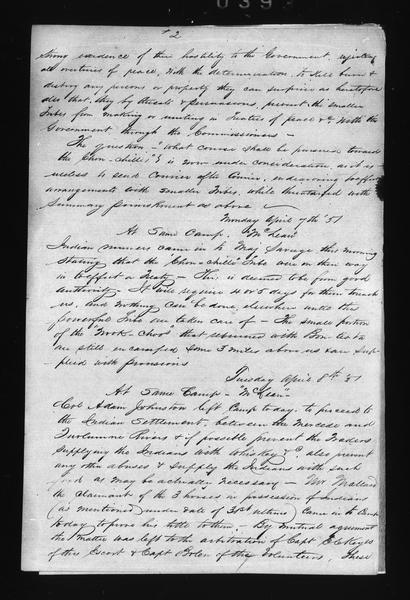 039
2
strong evidence of their hostility to the Government, rejecting
all overtures of peace, with the determination to kill burn &
destroy any persons or property they can surprise as heretofore
also that, they by threats & persuasions, prevent the smaller
Tribes from making or uniting in treaties of peace &c with the
Government through the Commissioners —
The question — "what course shall be pursued toward
the Chou-chille's" is now under consideration, as it is
useless to send Courier after Courier, endeavoring to effect
arrangements with smaller Tribes, while threatened with
summary punishment as above —
Monday April 7th 51
At Same Camp, "McLean"
Indian runners came in to Maj. Savage this morning
stating that the "Chou-chille" Tribe were on their way
in to effect a Treaty — This is deemed to be from good
authority — It will require 4 or 5 days for them to reach
us, and nothing can be done elsewhere until this
powerful Tribe are taken care of — The small portion
of the "Nook-choo" that returned with
are still encamped some 3 miles above us & are supplied
with provisions
Tuesday April 8th 51
At Same Camp — "McLean"
Col Adam Johnston left Camp today to proceed to
the Indian Settlement, between the Mercede and
Tuolumne Rivers & if possible prevent the Traders
supplying the Indians with Whiskey &c also prevent
any other abuses & supply the Indians with such
food as may be actually necessary — Mr Wallace
the claimant of the 3 horses in possession of Indians
(as mentioned under date of 31st ultimo) Came in to Camp
today to prove his title to them — By mutual agreement
the matter was left to the arbitration of Capt E. Keyes
of the Escort & Capt Bolen of the Volunteers, These